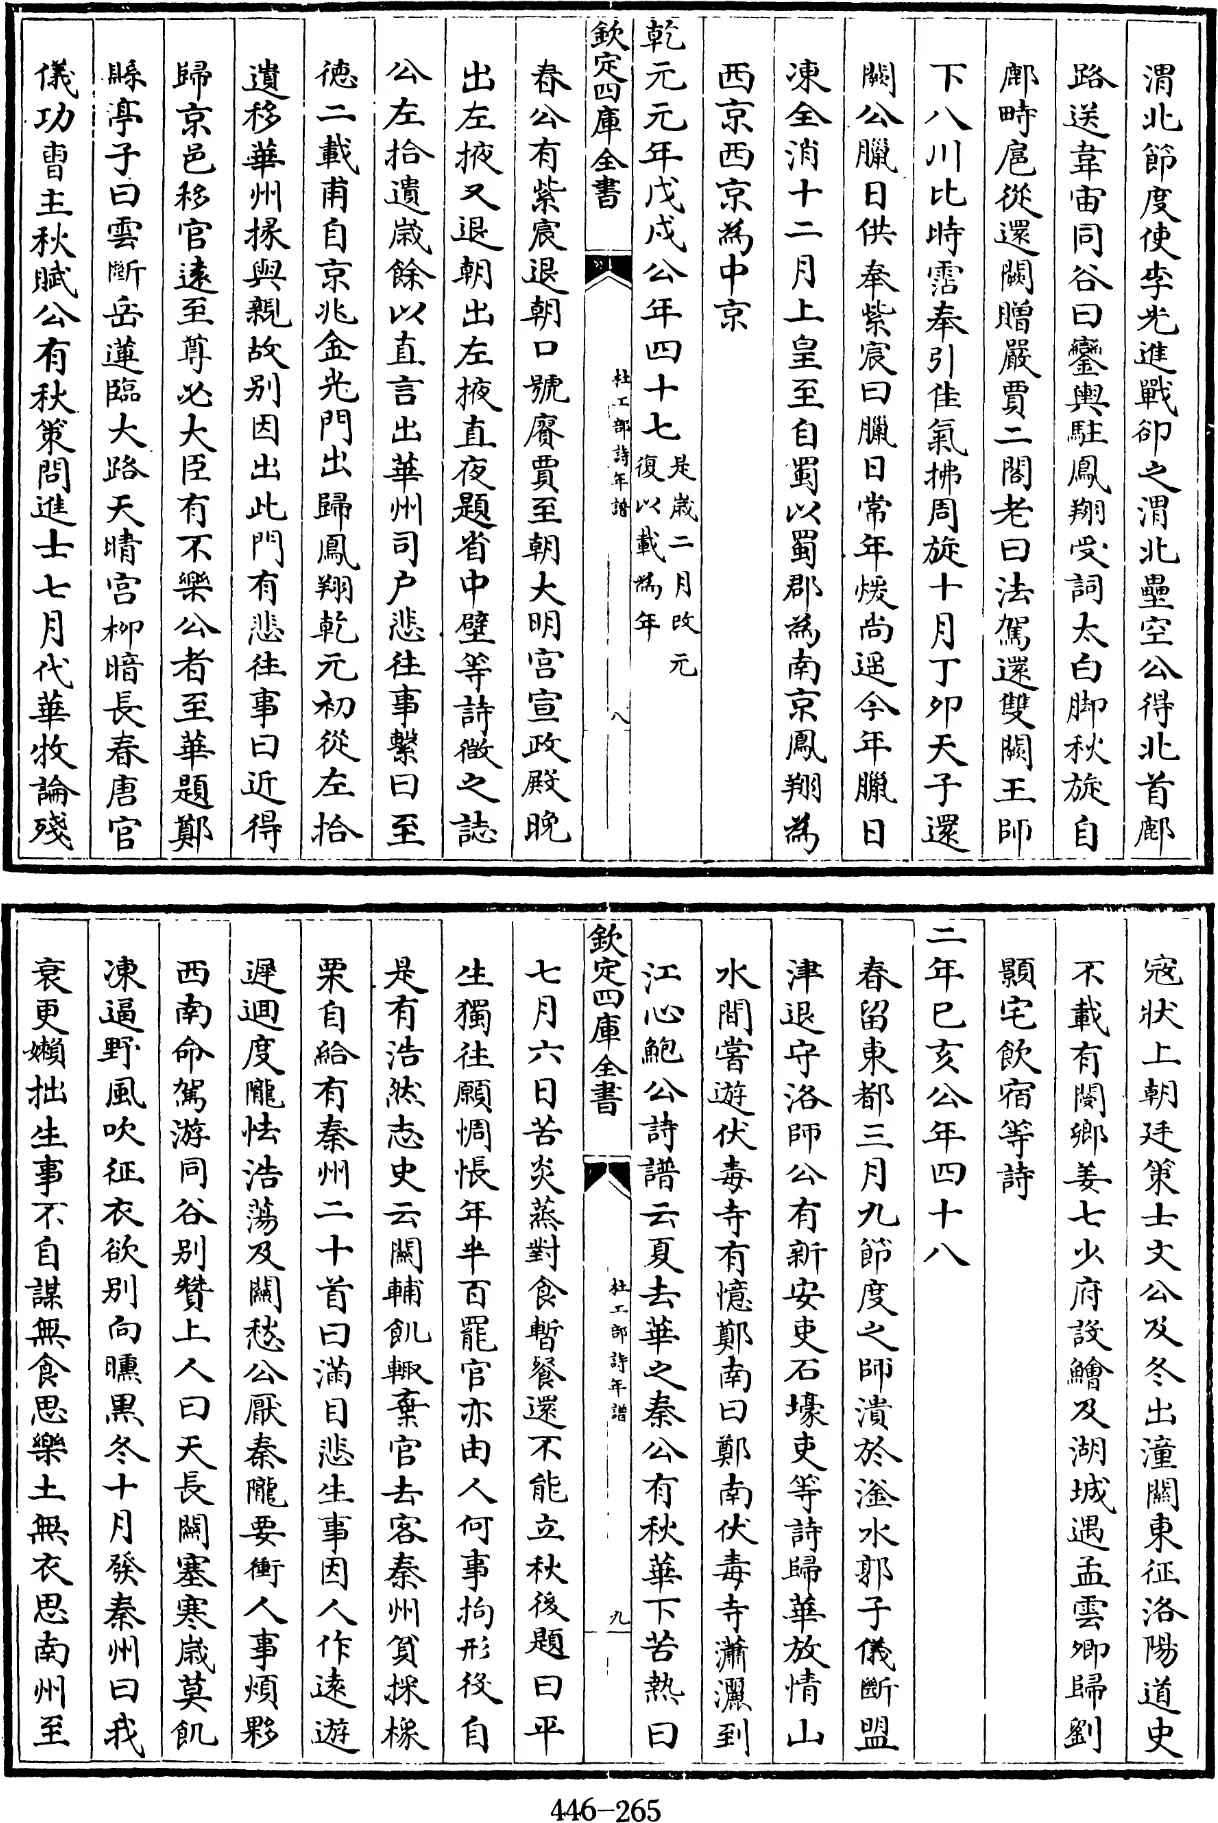 渭北節度使李光進戰卻之渭北壘空公得北首鄜
路送韋宙同谷曰鑾輿駐鳳翔受詞太白脚秋旋自
鄜畤扈從還闕贈嚴賈二閣老曰法駕還雙闕王師
下八川比時霑奉引佳氣拂周旋十月丁卯天子還
闕公臘日供奉紫宸曰臘日常年煖尚遥今年臘日
凍全消十二月上皇至自蜀以蜀郡為南京鳳翔為
西京西京為中京
乾元元年戊戌公年四十七是歳二月改元復以載為年
欽定四庫全書
杜工部詩年譜
八
春公有紫宸退朝口號賡賈至朝大明宫宣政殿晚
出左掖又退朝出左掖直夜題省中壁等詩徴之誌
公左拾遺歳餘以直言出華州司户悲往事繫曰至
徳二載甫自京兆金光門出歸鳳翔乾元初從左拾
遺移華州掾與親故别因出此門有悲往事曰近得
歸京邑移官逺至尊必大臣有不樂公者至華題鄭
縣亭子曰雲㫁岳蓮臨大路天晴宫栁暗長春唐官
儀功曹主秋賦公有秋策問進士七月代華牧論殘
寇狀上朝廷策士文公及冬出潼關東征洛陽道史
不載有閿鄉姜七少府設鱠及湖城遇孟雲卿歸劉
顥宅飲宿等詩
二年已亥公年四十八
春留東都三月九節度之師潰於滏水郭子儀斷盟
津退守洛師公有新安吏石壕吏等詩歸華放情山
水間嘗遊伏毒寺有憶鄭南曰鄭南伏毒寺瀟灑到
江心鮑公詩譜云夏去華之秦公有秋華下苦熱曰
欽定四庫全書
杜工部詩年譜
九
七月六日苦炎蒸對食暫餐還不能立秋後題曰平
生獨往願惆悵年半百罷官亦由人何事拘形役自
是有浩然志史云關輔飢輙棄官去客秦州貧採橡
栗自給有秦州二十首曰滿目悲生事因人作逺遊
遲迴度隴怯浩蕩及關愁公厭秦隴要衝人事煩夥
西南命駕游同谷别贊上人曰天長關塞寒歳莫飢
凍逼野風吹征衣欲别向曛黒冬十月發秦州曰我
衰更嬾拙生事不自謀無食思樂土無衣思南州至
446-265